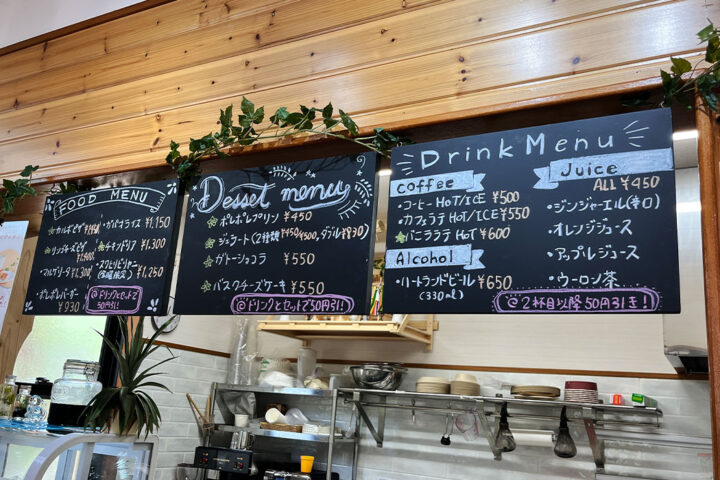 FOOD MENU
ガパオライス ¥1,150
チキンドリア ¥1,300
¥1,250
マルゲリータ
ポレポレバーガー
¥930
@ドリンクとセットで
50円引!
Desset menu
ポレポレプリン ¥450
ジェラート(2種類 ¥450/¥500, ダブル¥830)
ガトーショコラ ¥550
バスクチーズケーキ ¥550
@ドリンクとセットで50円引!!
Drink Menu
coffee
・コーヒー HOT/ICE ¥500
・カフェラテ HOT/ICE ¥550
バニララテ HOT ¥600
Alcohol
・ハートランドビール ¥650
(330ml)
Juice
ALL ¥450
・ジンジャーエール(辛口)
・オレンジジュース
・アップルジュース
・ウーロン茶
@2杯目以降50円引き!